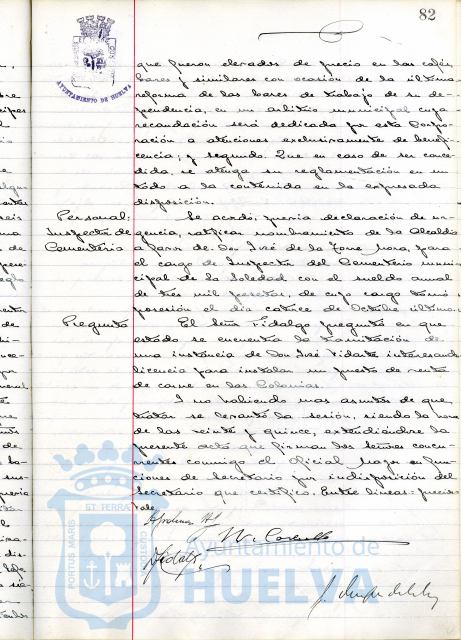 82
AYUNTAMIENTO DE HUELVA
que fueron elevados de precio en los cafés,
bares y similares con ocasión de la última
reforma de las bases de trabajo de su de-
pendencia, en un arbitrio municipal cuya
recaudación será dedicada por esta Corpo-
ración a atenciones exclusivamente de benefi-
cencia; y segundo. Que en caso de ser conce-
dida, se atenga su reglamentación en un
todo a la contenida en la expresada
disposición.
Personal:
Inspector de
Cementerio
Se acordó, previa declaración de ur-
gencia, ratificar nombramiento de la Alcaldía
a favor de Don José de la Torre Mora, para
el cargo de Inspector del Cementerio muni-
cipal de la Soledad con el sueldo anual
de tres mil pesetas, de cuyo cargo tomó
posesión el día catorce de Octubre último.
Pregunta
El Señor Fidalgo preguntó en que
estado se encuentra la tramitación de
una instancia de Don José Vidarte interesando
licencia para instalar un puesto de venta
de carne en las Colonias.
Y no habiendo mas asuntos de que
tratar se levantó la sesión, siendo la hora
de las veinte y quince, extendiéndose la
presente acta que firman los Señores concu-
rrentes conmigo el Oficial Mayor en fun-
ciones de Secretario por indisposición del
Secretario que certifico. Entre líneas: preciso
Vale.
Fidalgo
PORTUS MARIS
ST TERRAE
CUSTODIA
Ayuntamiento de
HUELVA